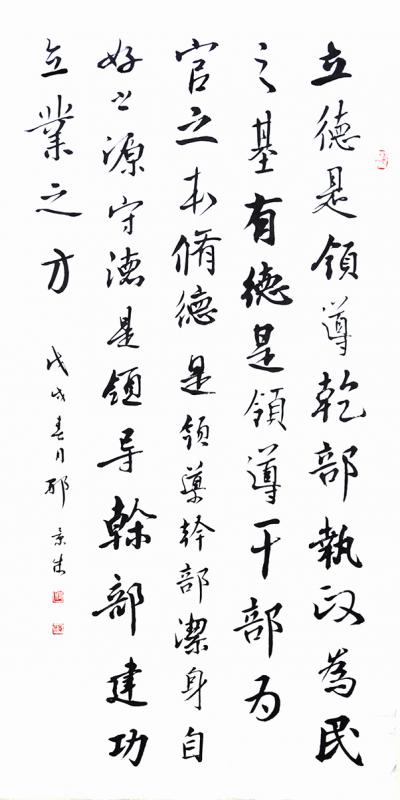 立德是領導乾部執政為民
之基有德是領導干部为
官之本脩德是領導幹部潔身自
好之源守德是領导榦部建功
立業之方
戊戌春月